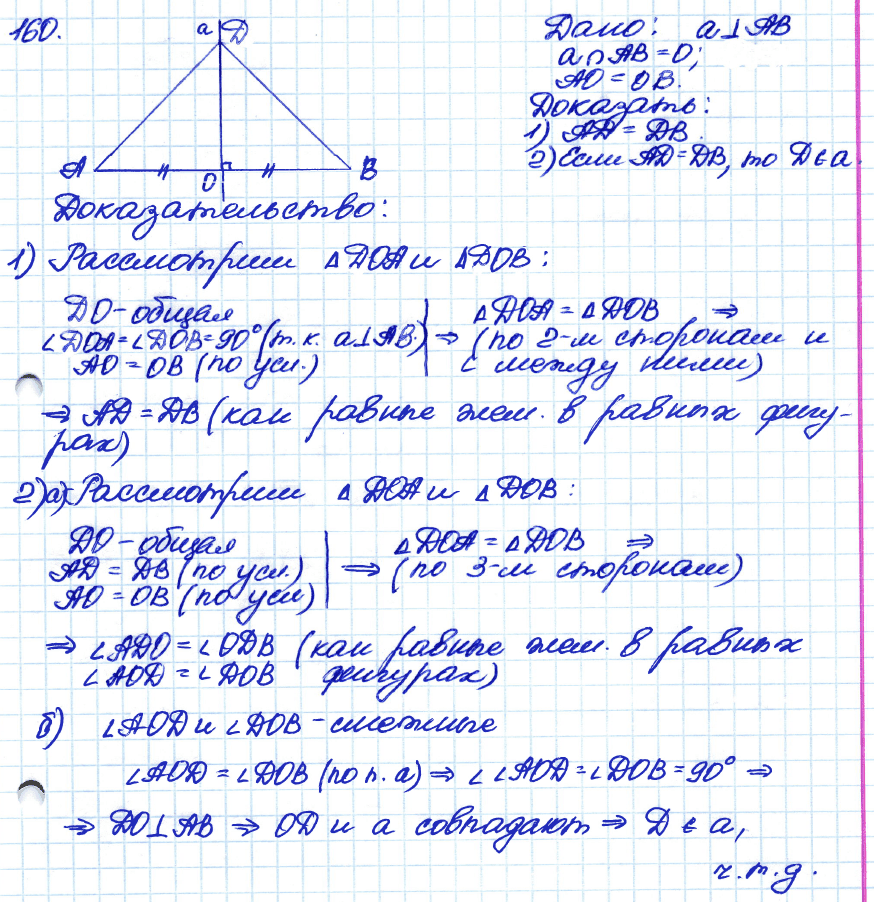 160.
a D
A O B
Дано: a⊥AB
a∩AB=O;
AO=OB.
Доказать:
1) AD=DB.
2) Если AD=DB, то D∈a.
Доказательство:
1) Рассмотрим △DOA и △DOB:
DO-общая
∠DOA=∠DOB=90°(т.к. a⊥AB.)
AO=OB (по усл.)
⇒ △DOA=△DOB ⇒
(по 2-м сторонам и
∠ между ними)
⇒ AD=DB (как равные элем. в равных фигу-
рах)
2)а) Рассмотрим △DOA и △DOB:
DO-общая
AD=DB (по усл.)
AO=OB (по усл)
⇒ △DOA=△DOB ⇒
(по 3-м сторонам)
⇒ ∠ADO=∠ODB (как равные элем. в равных
∠AOD=∠DOB фигурах)
б) ∠AOD и ∠DOB-смежные
∠AOD=∠DOB (по п. а) ⇒ ∠ ∠AOD=∠DOB=90° ⇒
⇒ DO⊥AB ⇒ OD и a совпадают ⇒ D∈a,
ч.т.д.